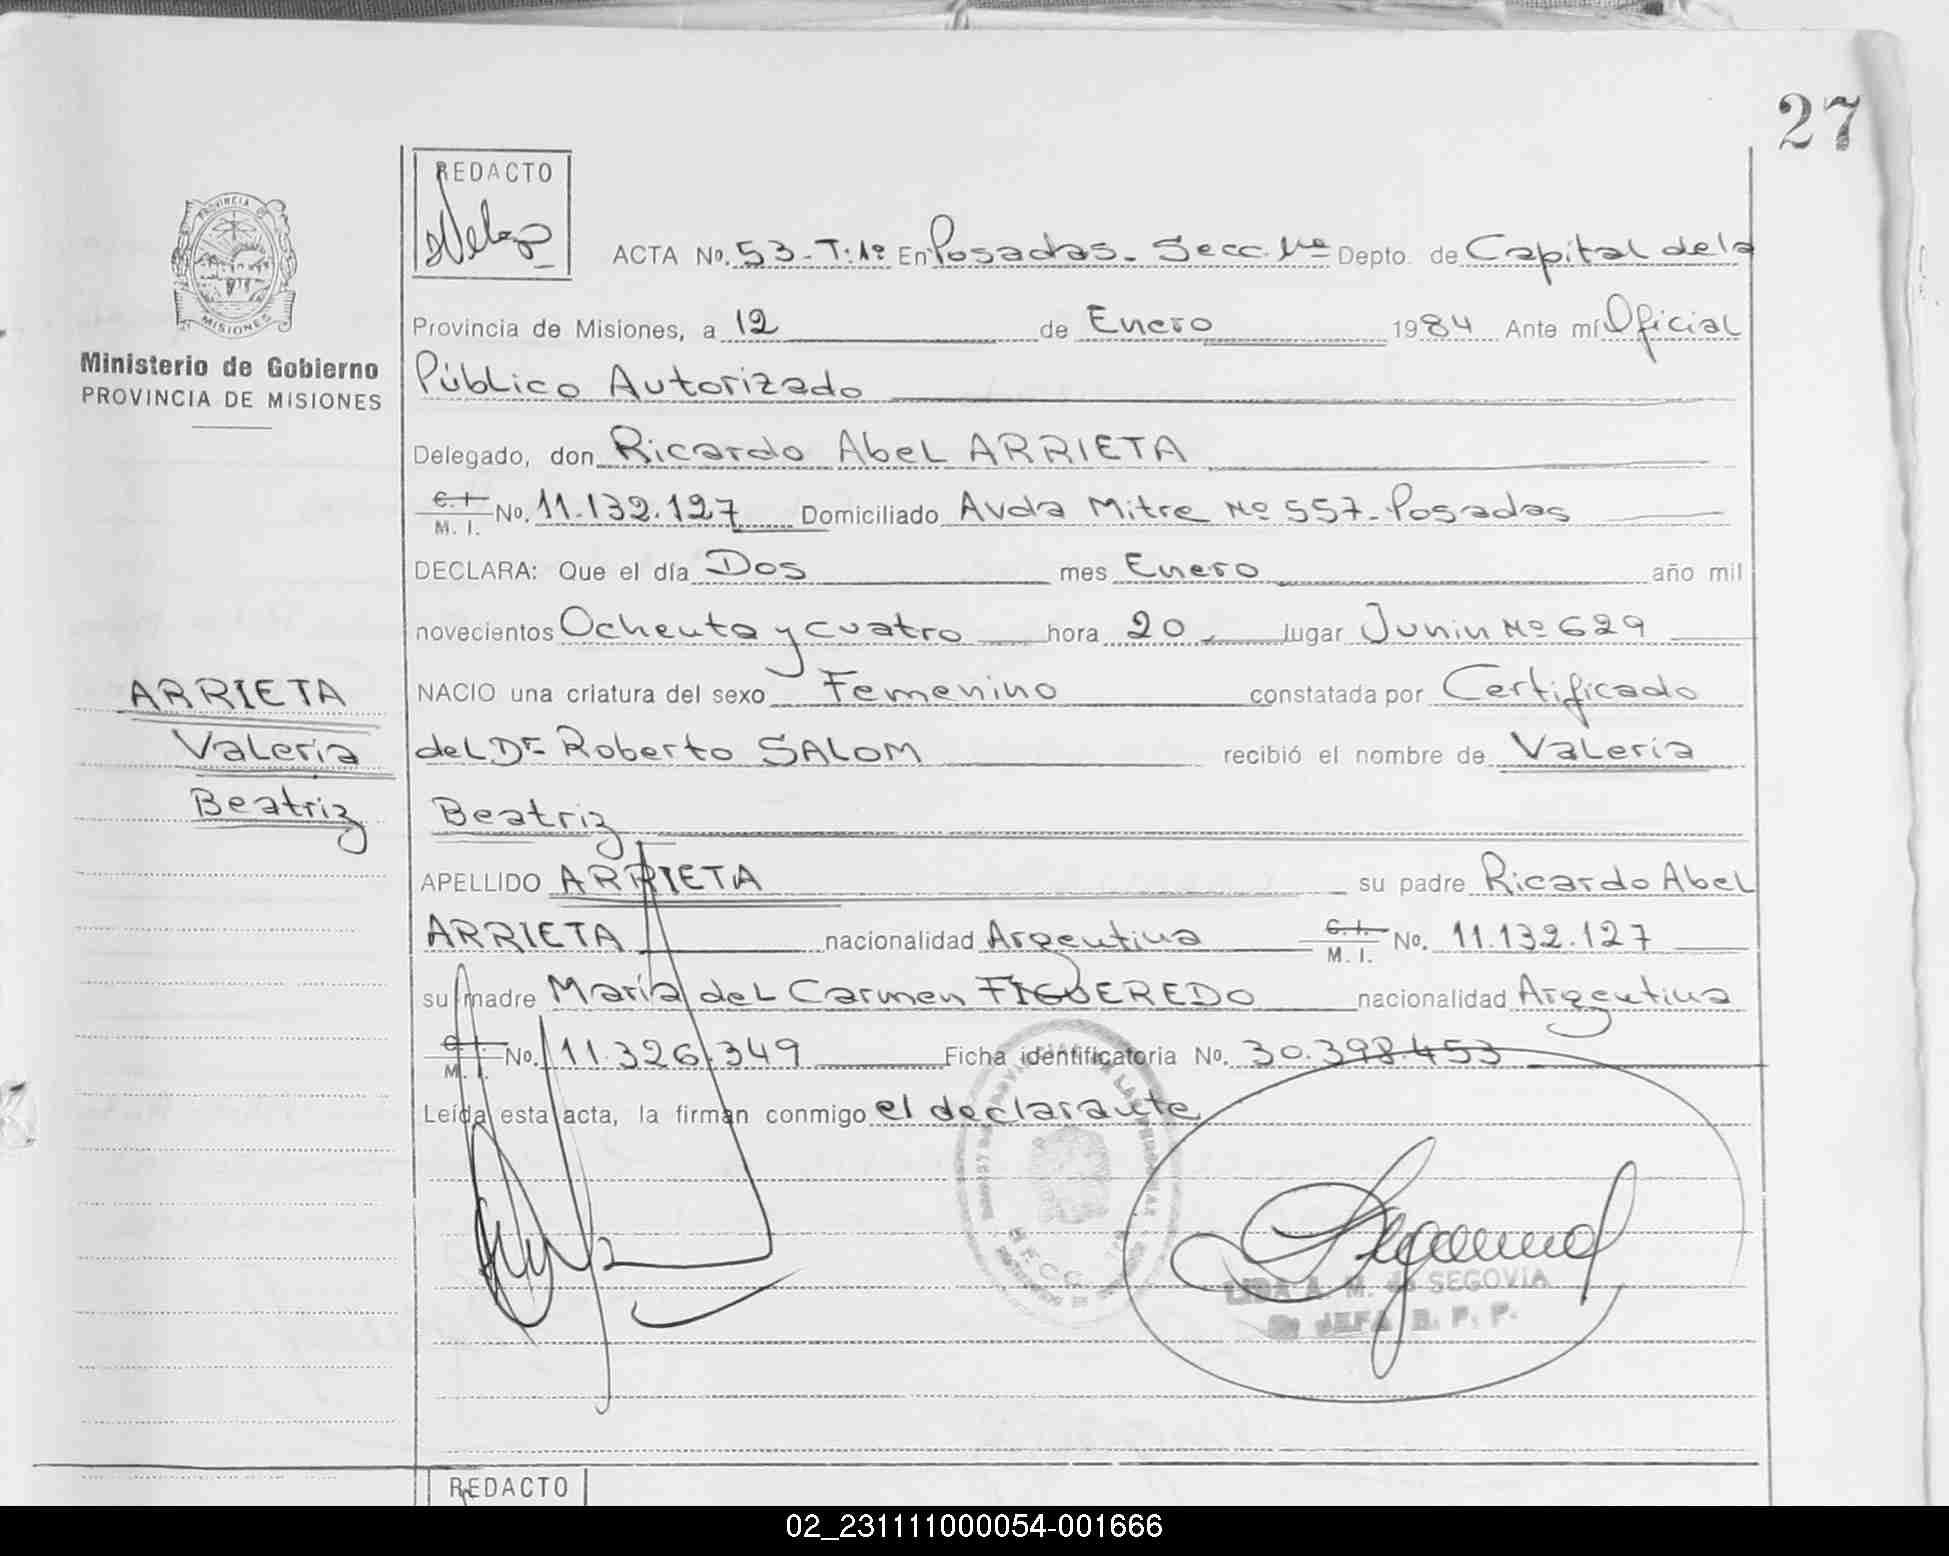 27
REDACTO
PROVINCIA DE
MISIONES
ACTA No. 53-T:1º En Posadas. Secc. 1ra Depto. de Capital de la
Provincia de Misiones, a 12 de Enero 1984 Ante mí Oficial
Ministerio de Gobierno
PROVINCIA DE MISIONES
Público Autorizado
Delegado, don Ricardo Abel ARRIETA
C. I.
M. I. No. 11.132.127 Domiciliado Avda Mitre Nº 557-Posadas
DECLARA: Que el día Dos mes Enero año mil
novecientos Ochenta y cuatro hora 20 lugar Junin Nº 629
NACIO una criatura del sexo Femenino constatada por Certificado
del Dr Roberto SALOM recibió el nombre de Valeria
Beatriz
ARRIETA
Valeria
Beatriz
APELLIDO ARRIETA su padre Ricardo Abel
ARRIETA nacionalidad Argentina C. I. M. I. No. 11.132.127
su madre María del Carmen FIGUEREDO nacionalidad Argentina
M. I. No. 11.326.349 Ficha identificatoria No. 30.398.453
Leída esta acta, la firman conmigo el declarante
LIDA A. M. de SEGOVIA
JEFA B. P. P.
REDACTO
02_231111000054-001666